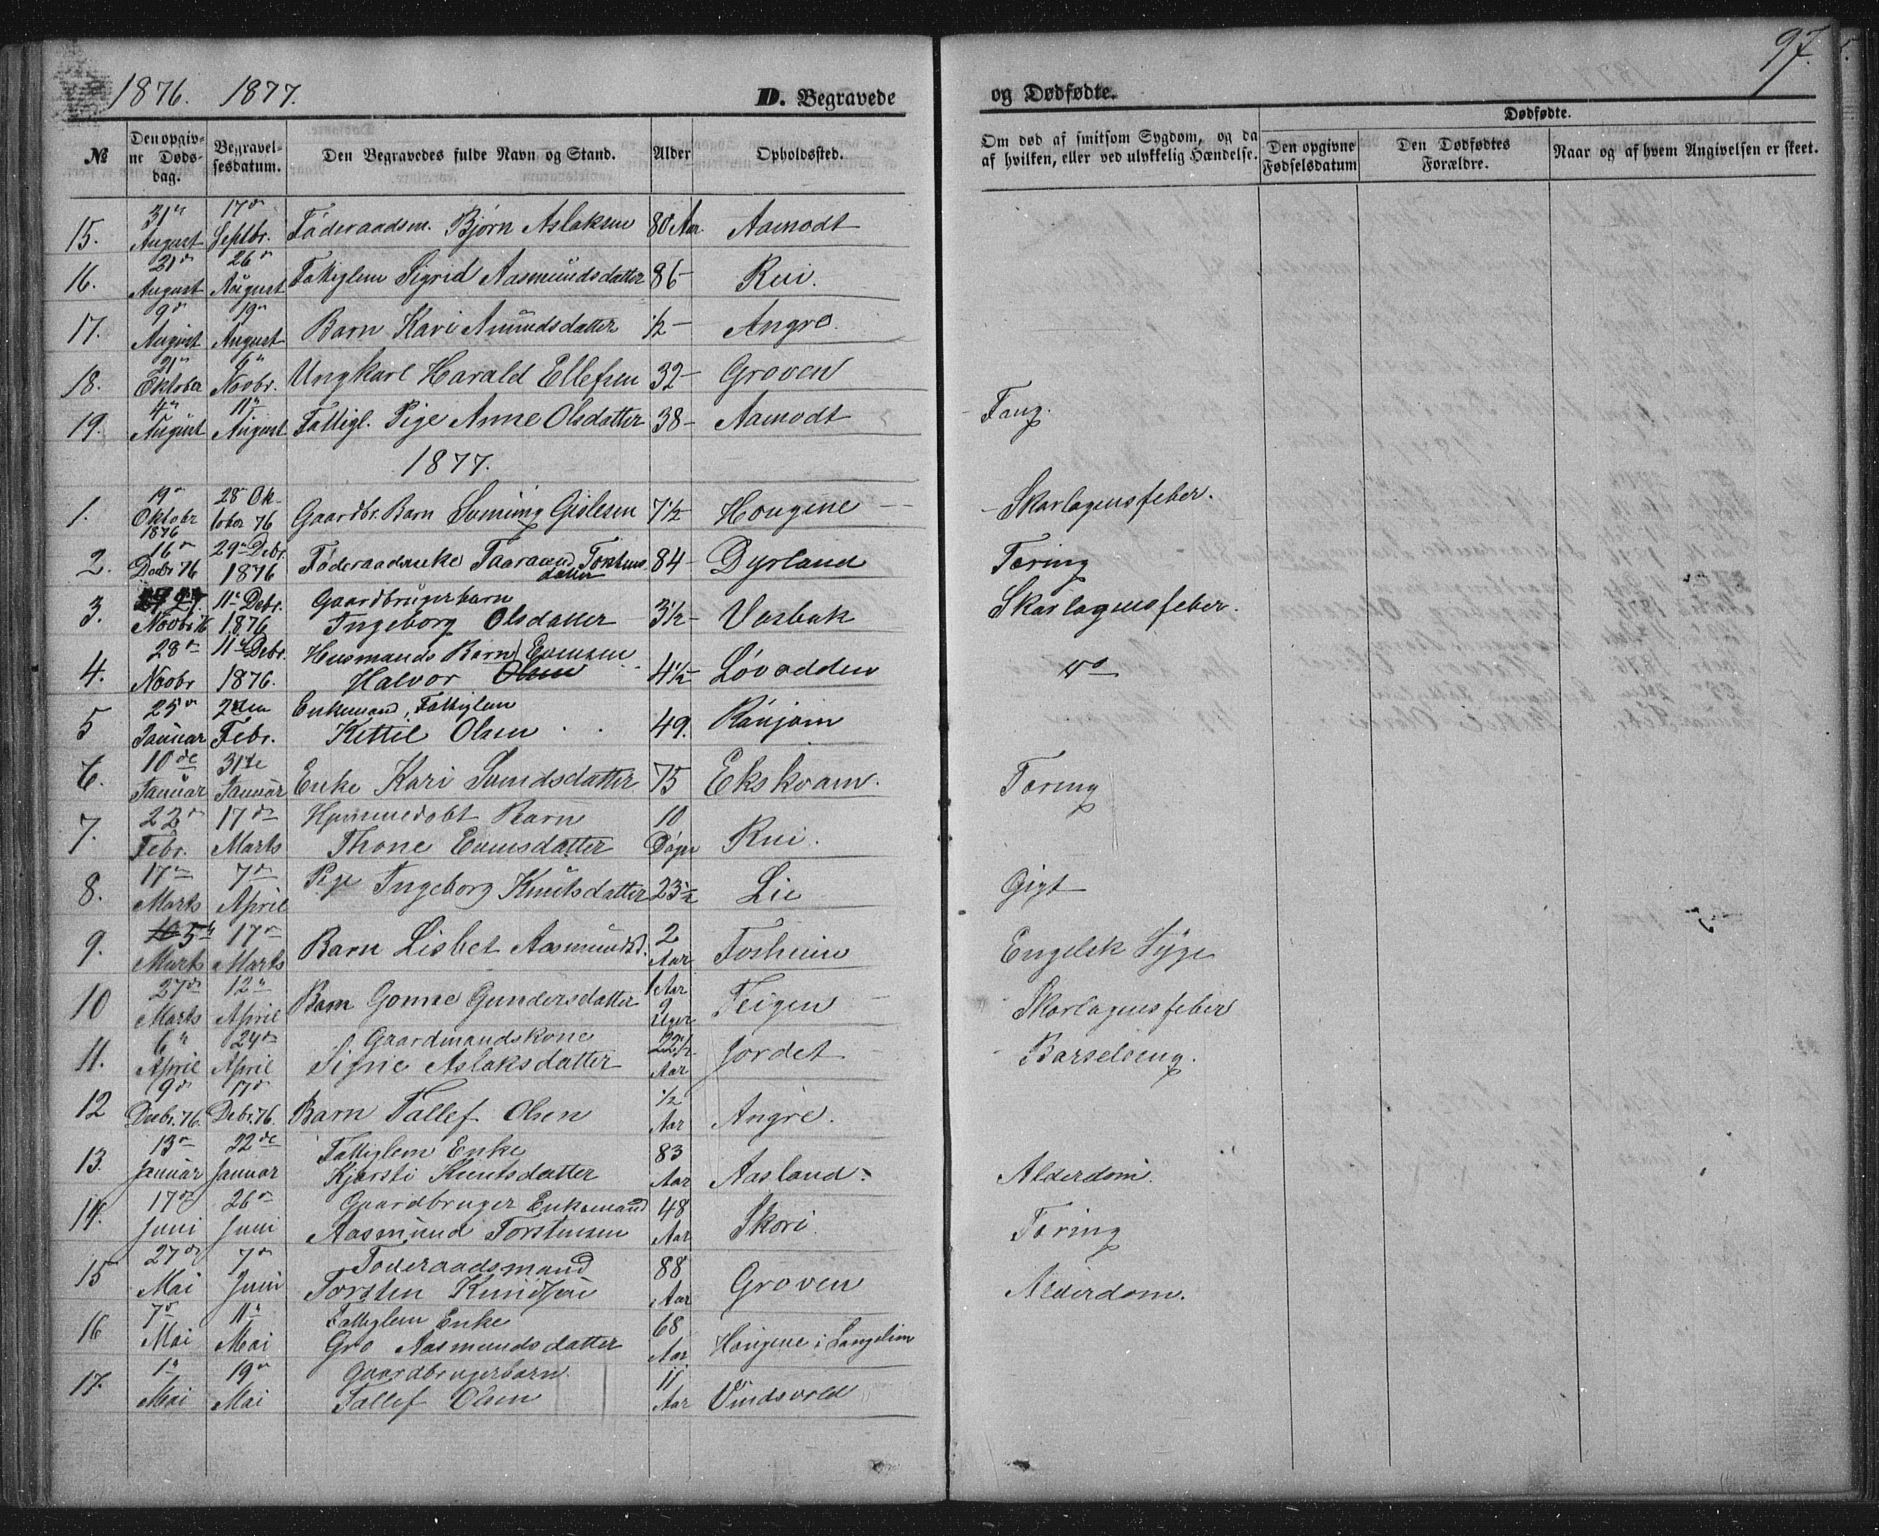 1876. 1877.
D. Begravede og Dødfødte.
97.
№
Den opgivne Dødsdag.
Begravelsesdatum.
Den Begravedes fulde Navn og Stand.
Alder
Opholdssted.
Om død af smitsom Sygdom, og da af hvilken, eller ved ulykkelig Hændelse.
Dødfødte.
Den opgivne Fødselsdatum
Den Dødfødtes Forældre.
Naar og af hvem Angivelsen er skeet.
15. 31 August 17de Septbr. Føderaadsm. Bjørn Aslaksen 80 Aar Aamodt
16. 21de August 26de August Fattiglem Sigrid Aasmundsdatter 86 - Rui.
17. 9de August 19de August Barn Kari Amundsdatter 1/2 - Angre.
18. 21 Oktober 6 Novbr. Ungkarl Harald Ellefsen 32 - Groven
19. 4 August 11 August Fattigl. Pige Anne Olsdatter 38 - Aamodt - Tæng.
1877.
1. 19de Oktobr 1876 28 Oktober 76 Gaardbr. Barn Sveinung Gislesen 7 1/2 Hougene - Skarlagensfeber.
2. 16de Decbr 76 29de Debr. 1876 Føderaadenke Taaraand Torstensdatter 84 - Dyrland Tæring
3. 27. Novbr 76 11te Debr. 1876 Gaardbrugerbarn Ingeborg Olsdatter 3 1/2 - Vasbak Skarlagensfeber.
4. 28de Novbr 11te Debr. 1876. Husmands Barn Halvor Olsen Evensen 4 1/2 - Løvodden do
5 25de Januar 2den Febr. Enkemand, Fattiglem Kettil Olsen 49. Rønjom
6. 10de Januar 31te Januar Enke Kari Sundsdatter 75 Ekskvam. Tæring
7. 22de Febr. 17de Marts Hjemmedøbt Barn Thone Evensdatter 10 Døgn Rui.
8. 17de Marts 7de April Pige Ingeborg Knutsdatter 23 1/2 Lie Gigt
9. 10 5te Marts 17de Marts Barn Lisbet Aasmundsd. 2 Aar Tosheim Engelsk Syge
10 27de Marts 12te April Barn Gonne Gundersdatter 1 Aar 2 Uger Teigen - Skarlagensfeber
11. 6te April 24de April Gaardmandskone Signe Aslaksdatter 22 1/2 Aar Jordet - Barselseng.
12 9de Decbr. 76 17de Debr. 76. Barn Tallef Olsen 1/2 Aar Angre.
13. 13de Januar 22de Januar Fattiglem Enke Kjersti Knutsdatter 83 Aar Aasland. Alderdom.
14. 17de Juni 26de Juni Gaardbruger Enkemand Aasmund Torstensen 48 Aar Skori Tæring
15 27de Mai 7de Juni Føderaadsmand Torsten Knudsen 88 Aar Groven Alderdom.
16 7de Mai 11te Mai Fattiglem Enke Gro Aasmundsdatter 68 Aar Hougene i Langelim
17. 1ste Mai 19de Mai Gaardbrugerbarn. Tallef Olsen 11 Aar Vindsvold